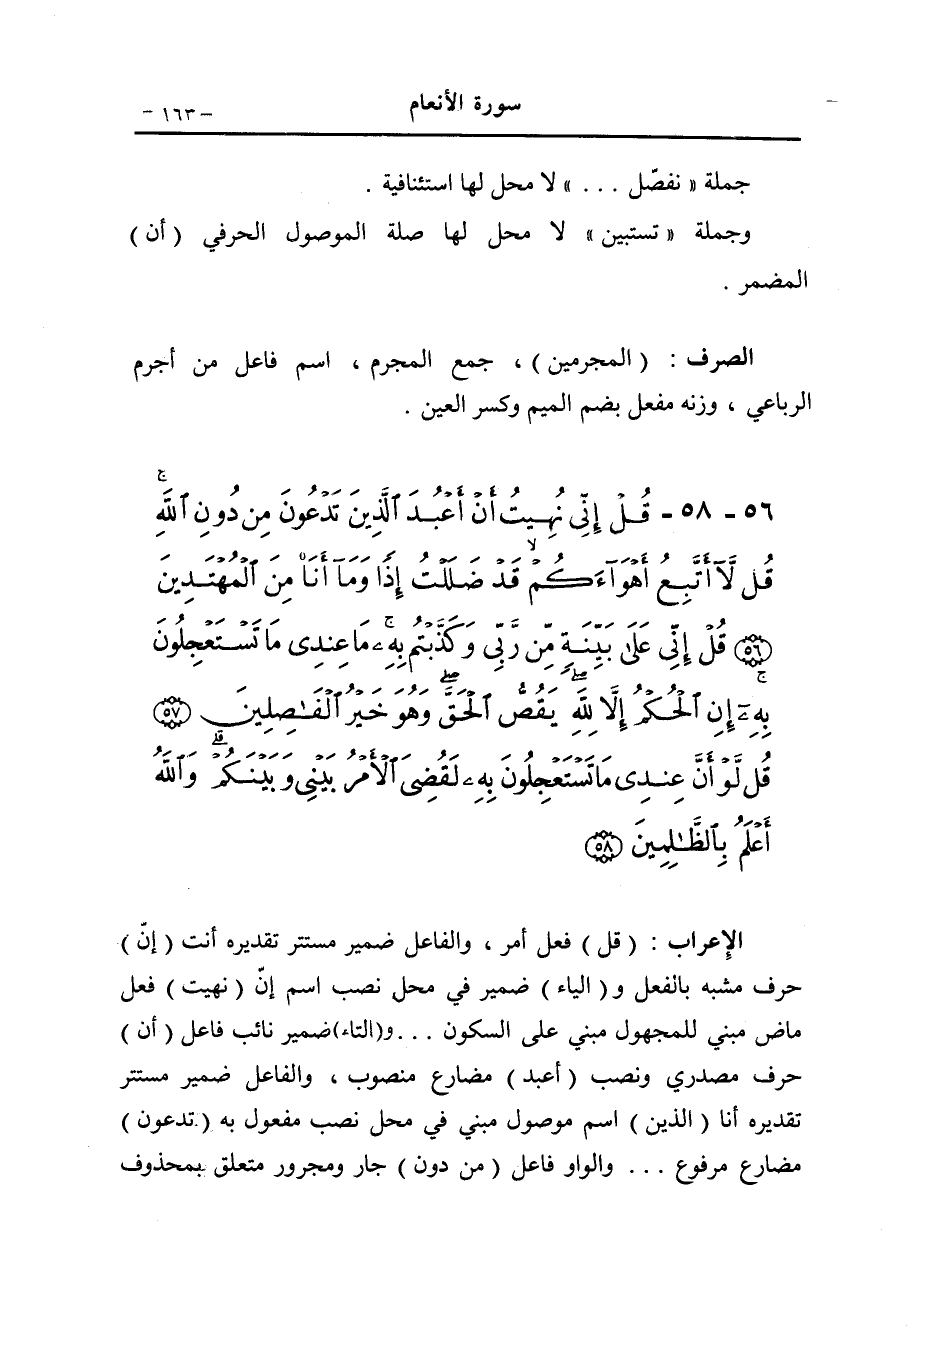 سورة الأنعام
- ١٦٣ -
جملة « نفصّل . . . » لا محل لها استئنافية .
وجملة « تستبين » لا محل لها صلة الموصول الحرفي ( أن )
المضمر .
الصرف : ( المجرمين ) ، جمع المجرم ، اسم فاعل من أجرم
الرباعي ، وزنه مفعل بضم الميم وكسر العين .
٥٦ - ٥٨ - قُلْ إِنِّي نُهِيتُ أَنْ أَعْبُدَ ٱلَّذِينَ تَدْعُونَ مِن دُونِ ٱللَّهِ ۚ
قُل لَّآ أَتَّبِعُ أَهْوَآءَكُمْ ۙ قَدْ ضَلَلْتُ إِذًا وَمَآ أَنَا۠ مِنَ ٱلْمُهْتَدِينَ
﴿٥٦﴾ قُلْ إِنِّي عَلَىٰ بَيِّنَةٍ مِّن رَّبِّي وَكَذَّبْتُم بِهِۦ ۚ مَا عِندِى مَا تَسْتَعْجِلُونَ
بِهِۦٓ ۚ إِنِ ٱلْحُكْمُ إِلَّا لِلَّهِ ۖ يَقُصُّ ٱلْحَقَّ ۖ وَهُوَ خَيْرُ ٱلْفَـٰصِلِينَ ﴿٥٧﴾
قُل لَّوْ أَنَّ عِندِى مَا تَسْتَعْجِلُونَ بِهِۦ لَقُضِىَ ٱلْأَمْرُ بَيْنِي وَبَيْنَكُمْ ۗ وَٱللَّهُ
أَعْلَمُ بِٱلظَّـٰلِمِينَ ﴿٥٨﴾
الإعراب : ( قل ) فعل أمر ، والفاعل ضمير مستتر تقديره أنت ( إنّ )
حرف مشبه بالفعل و( الياء ) ضمير في محل نصب اسم إنّ ( نهيت ) فعل
ماض مبني للمجهول مبني على السكون . . . و(التاء)ضمير نائب فاعل ( أن )
حرف مصدري ونصب ( أعبد ) مضارع منصوب ، والفاعل ضمير مستتر
تقديره أنا ( الذين ) اسم موصول مبني في محل نصب مفعول به ( تدعون )
مضارع مرفوع . . . والواو فاعل ( من دون ) جار ومجرور متعلق بمحذوف